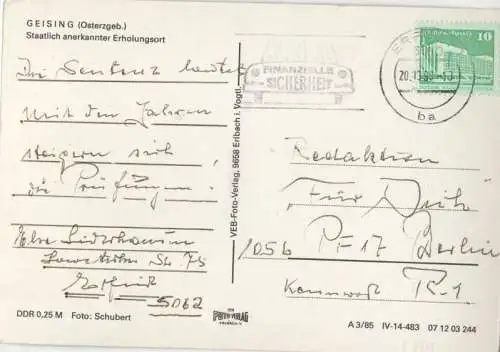 GEISING (Osterzgeb.)
Staatlich anerkannter Erholungsort
Die Sentenz lautet
Mit den Jahren
steigern sich
die Prüfungen.
Sowetischer Str. 75
Erfurt
5062
DDR 0,25 M Foto: Schubert
VEB-Foto-Verlag, 9658 Erlbach i. Vogtl.
FINANZIELLE
SICHERHEIT
ba
10
Redaktion
"Für Dich"
1056 PF 17 Berlin
Kennwort R-1
A 3/85 IV-14-483 07 12 03 244